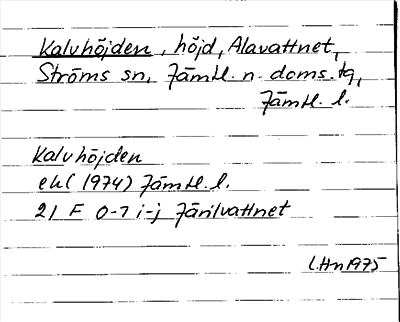 Kalvhöjden, höjd, Alavattnet,
Ströms sn, Jämtl. n. doms. tg,
Jämtl. l.
Kalvhöjden
ek (1974) Jämtl. l.
21 F 0-1 i-j Järilvattnet
LHn 1975